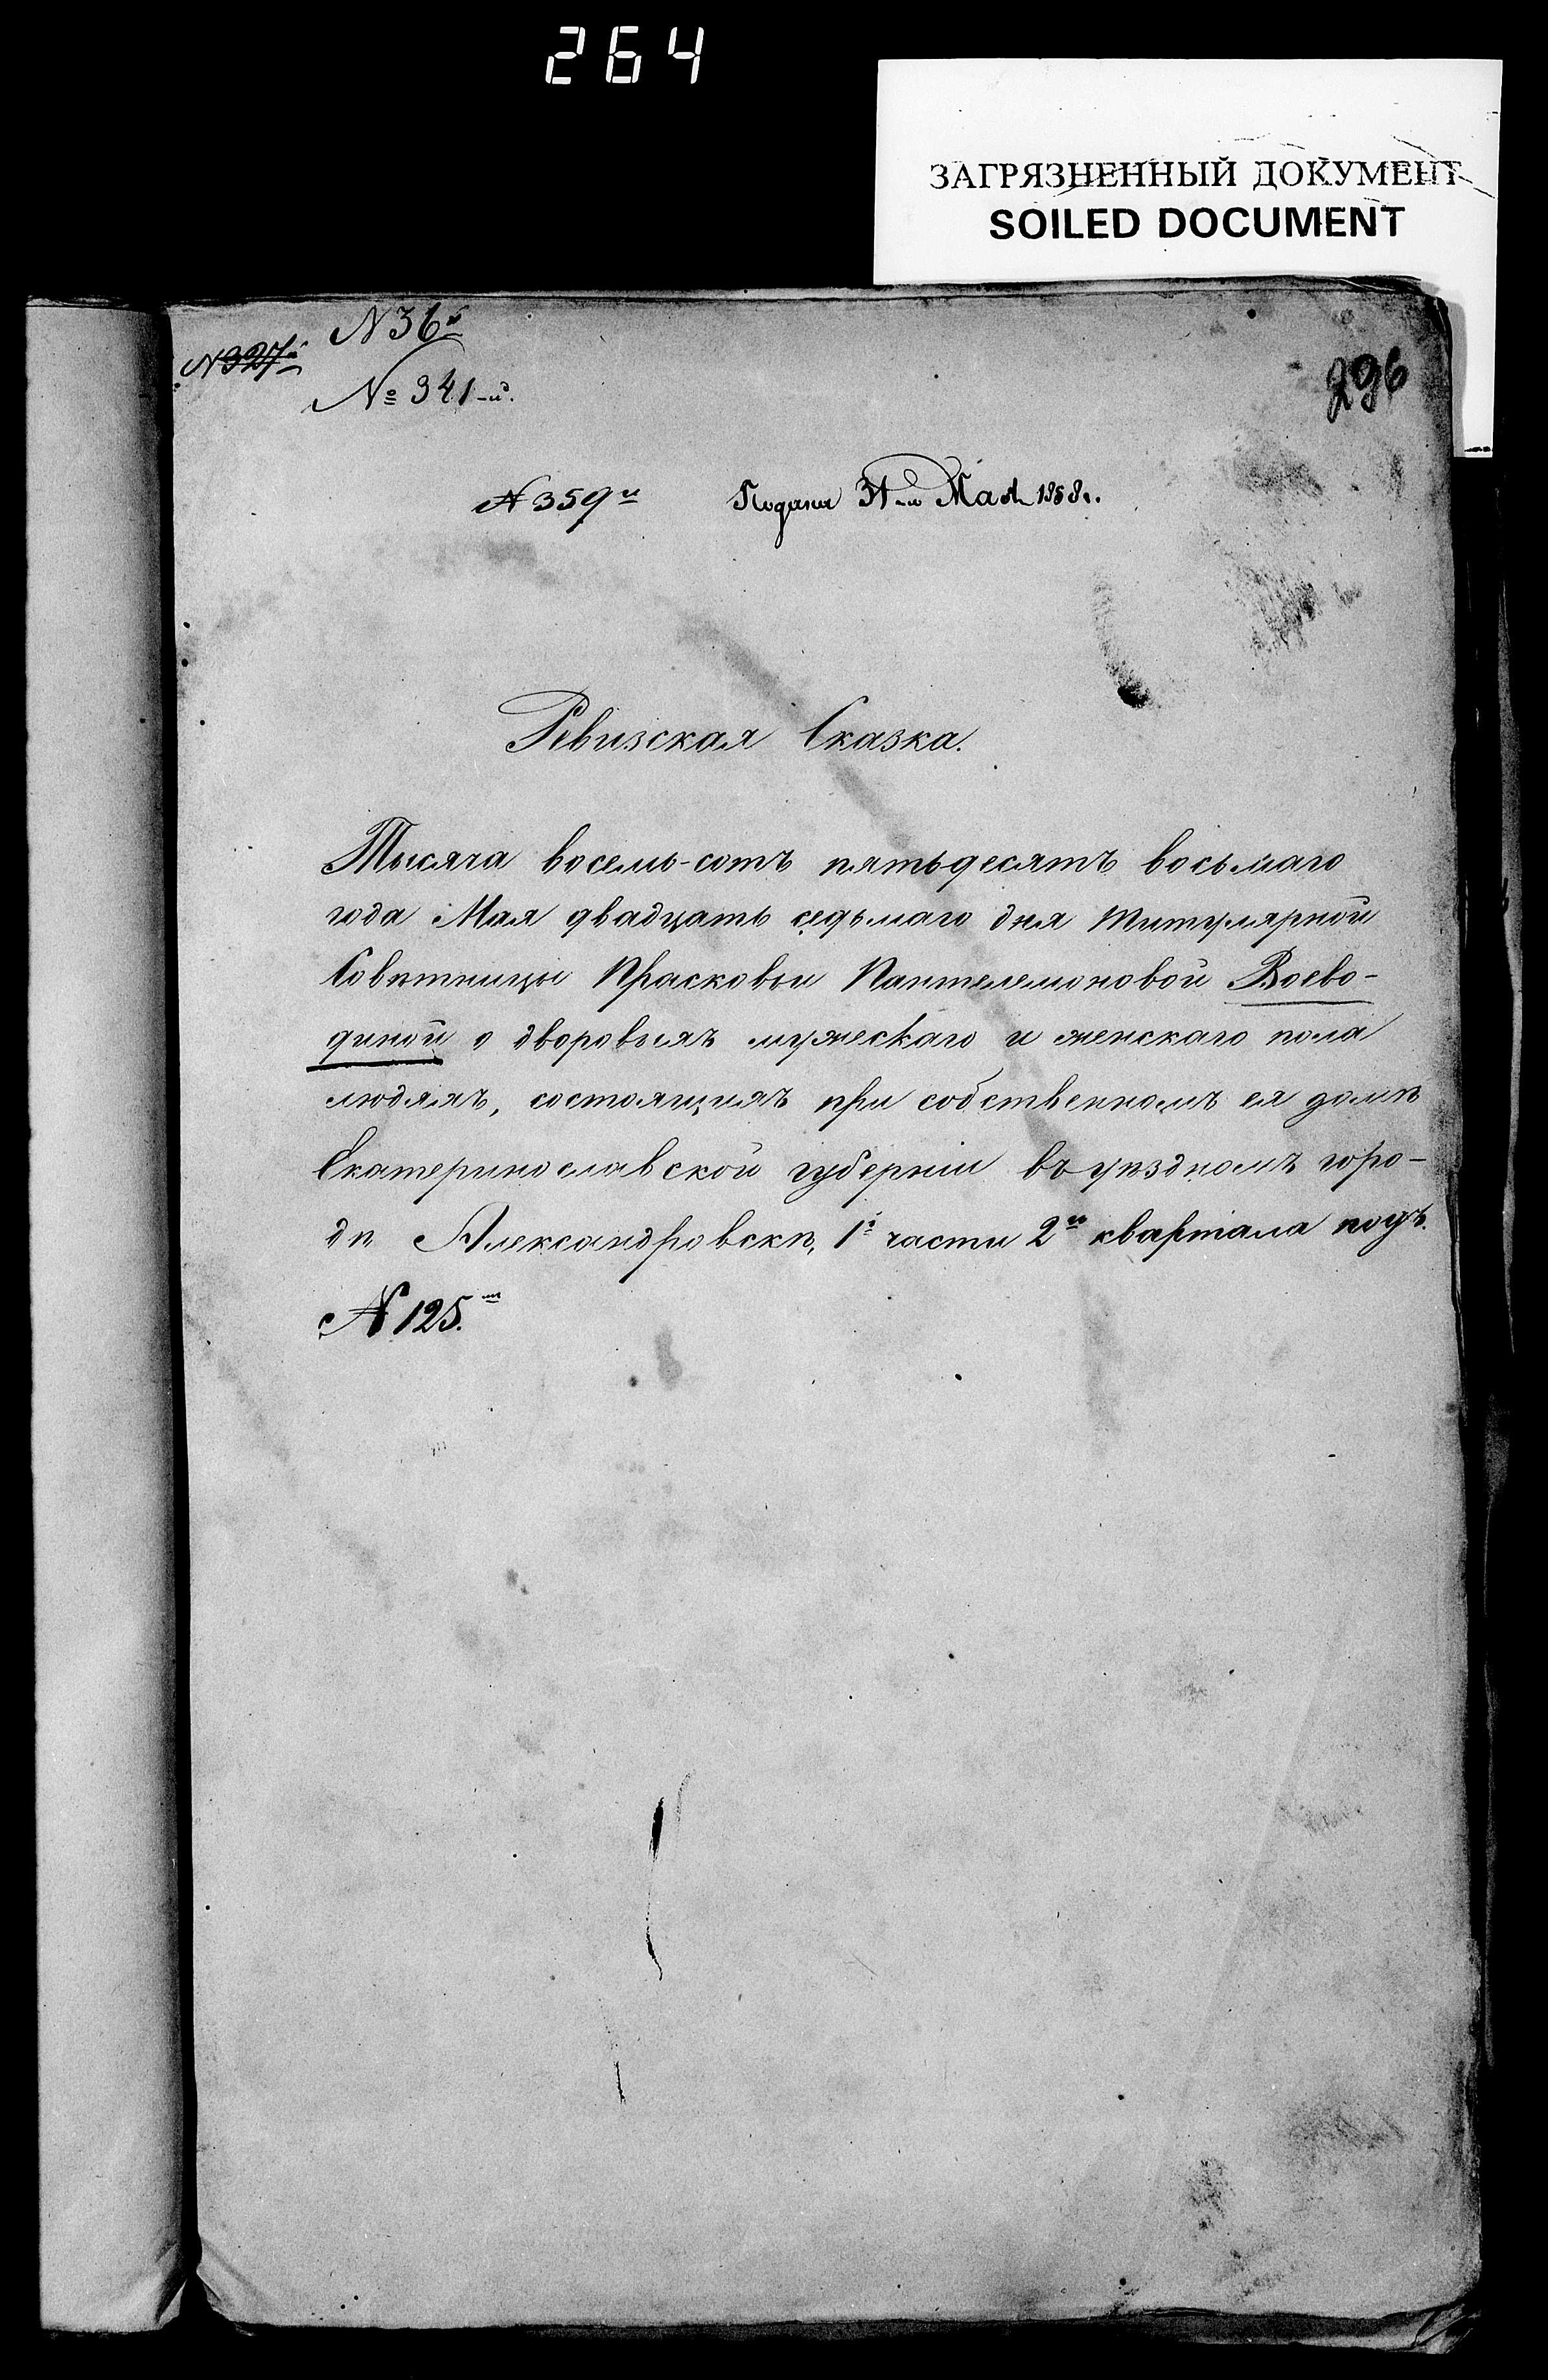 264
ЗАГРЯЗНЕННЫЙ ДОКУМЕНТ
SOILED DOCUMENT
N 36й
N 327й
№ 341-й.
296
N 359й Подана 31-го Мая 1858 г.
Ревизская Сказка.
Тысяча восемь-сотъ пятьдесятъ восьмаго
года Мая двадцать седьмаго дня Титулярной
Совѣтницы Прасковьи Пантелемоновой Воево-
диной о дворовыхъ мужескаго и женскаго пола
людяхъ, состоящихъ при собственномъ ея домѣ
Екатеринославской губерніи въ уѣздномъ горо-
дѣ Александровскѣ, 1й части 2й квартала подъ
N 125.м